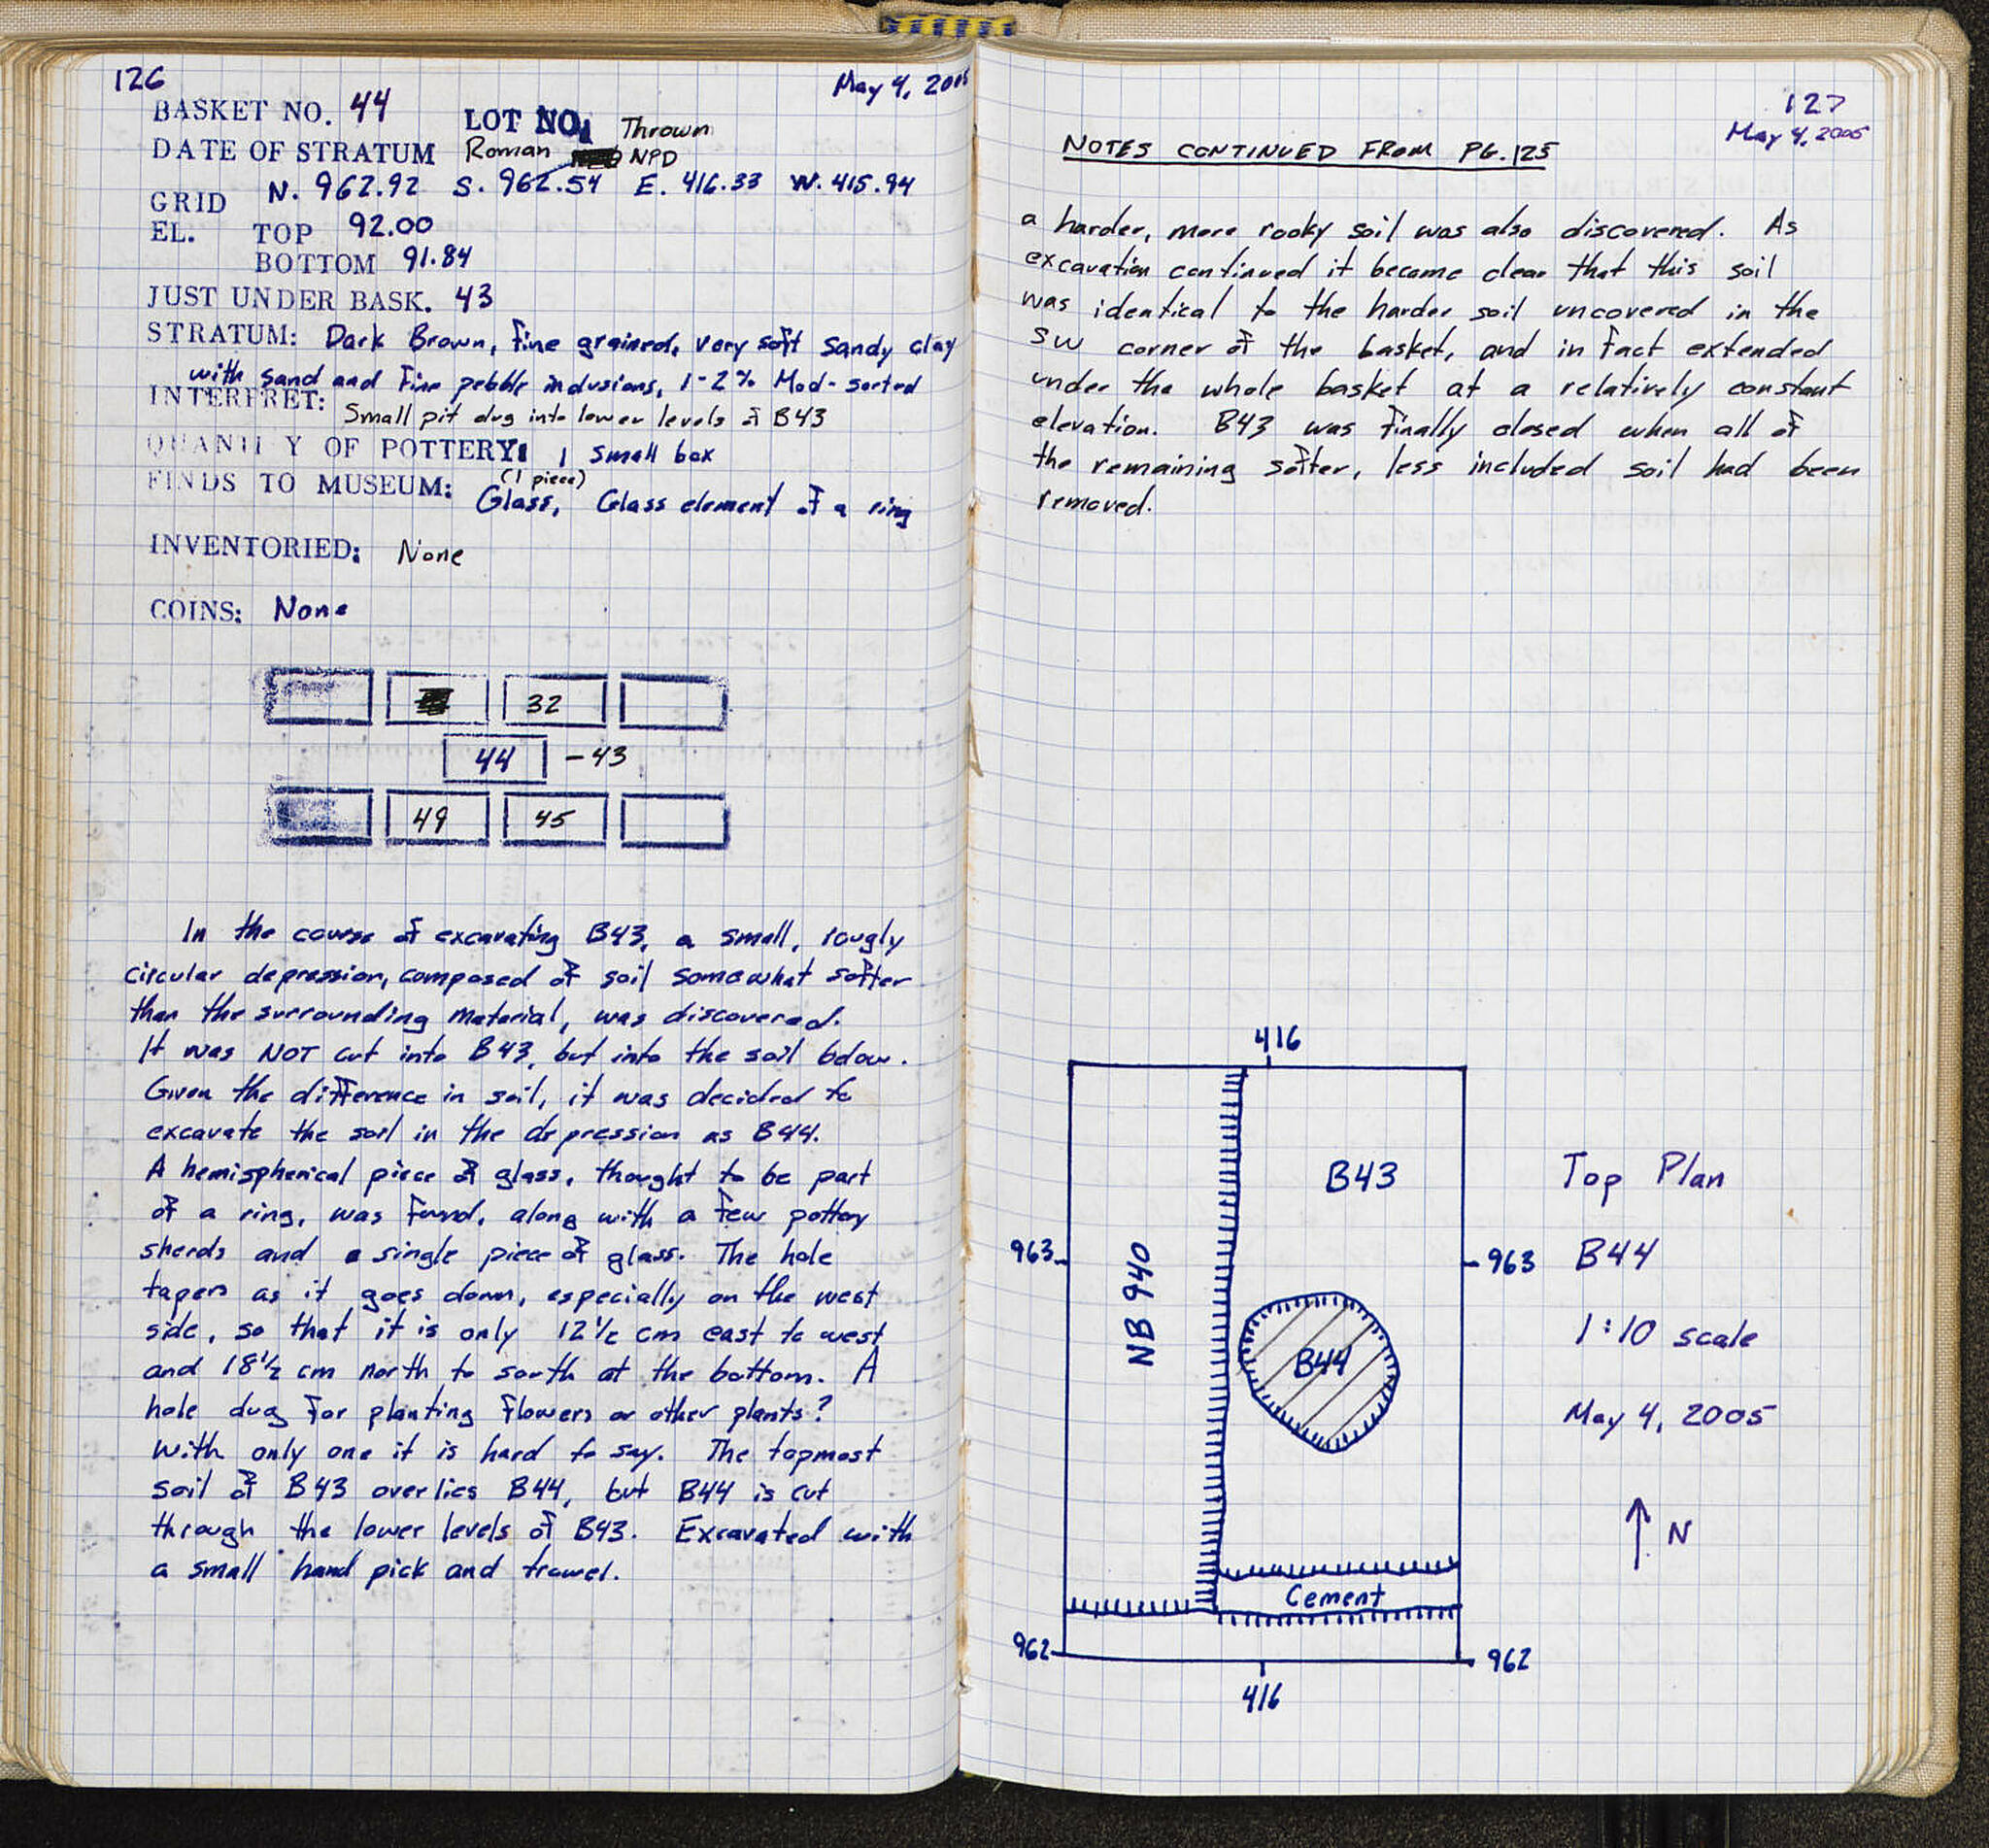 126
May 4, 2005
BASKET NO. 44
LOT NO. Thrown
DATE OF STRATUM Roman NPD
GRID N. 962.92 S. 962.54 E. 416.33 W. 415.94
EL. TOP 92.00
BOTTOM 91.84
JUST UNDER BASK. 43
STRATUM: Dark Brown, fine grained, very soft sandy clay
with sand and fine pebble inclusions, 1-2% Mod-sorted
INTERPRET: Small pit dug into lower levels of B43
QUANTITY OF POTTERY: 1 small box
FINDS TO MUSEUM: Glass, (1 piece) Glass element of a ring
INVENTORIED: None
COINS: None
32
44 -43
49 45
In the course of excavating B43, a small, rougly
circular depression, composed of soil somewhat softer
than the surrounding material, was discovered.
It was NOT cut into B43, but into the soil below.
Given the difference in soil, it was decided to
excavate the soil in the depression as B44.
A hemispherical piece of glass, thought to be part
of a ring, was found, along with a few pottery
sherds and a single piece of glass. The hole
tapers as it goes down, especially on the west
side, so that it is only 12½ cm east to west
and 18½ cm north to south at the bottom. A
hole dug for planting flowers or other plants?
With only one it is hard to say. The topmost
soil of B43 overlies B44, but B44 is cut
through the lower levels of B43. Excavated with
a small hand pick and trowel.
127
May 4, 2005
NOTES CONTINUED FROM PG. 125
a harder, more rocky soil was also discovered. As
excavation continued it became clear that this soil
was identical to the harder soil uncovered in the
SW corner of the basket, and in fact extended
under the whole basket at a relatively constant
elevation. B43 was finally closed when all of
the remaining softer, less included soil had been
removed.
416
B43
963
963
NB 940
B44
Cement
962
962
416
Top Plan
B44
1:10 scale
May 4, 2005
N